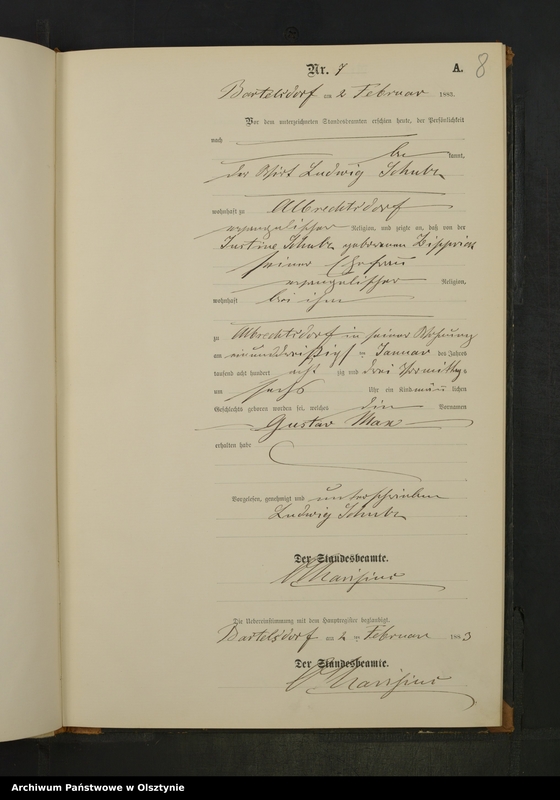 8
Nr. 7 A.
Bartelsdorf am 2 Februar 1883.
Vor dem unterzeichneten Standesbeamten erschien heute, der Persönlichkeit
nach
be kannt,
der Wirt Ludwig Schulz
wohnhaft zu Albrechtsdorf
evangelischer Religion, und zeigte an, daß von der
Justine Schulz geborenen
seiner Ehefrau
evangelischer Religion,
wohnhaft bei ihm
zu Albrechtsdorf in seiner Wohnung
am einunddreißigsten Januar des Jahres
tausend acht hundert acht zig und drei Vormittags
um sechs Uhr ein Kind männ lichen
Geschlechts geboren worden sei, welches die Vornamen
Gustav Max
erhalten habe
Vorgelesen, genehmigt und unterschrieben
Ludwig Schulz
Der Standesbeamte.
Die Uebereinstimmung mit dem Hauptregister beglaubigt.
Bartelsdorf am 2 ten Februar 1883
Der Standesbeamte.
Archiwum Państwowe w Olsztynie